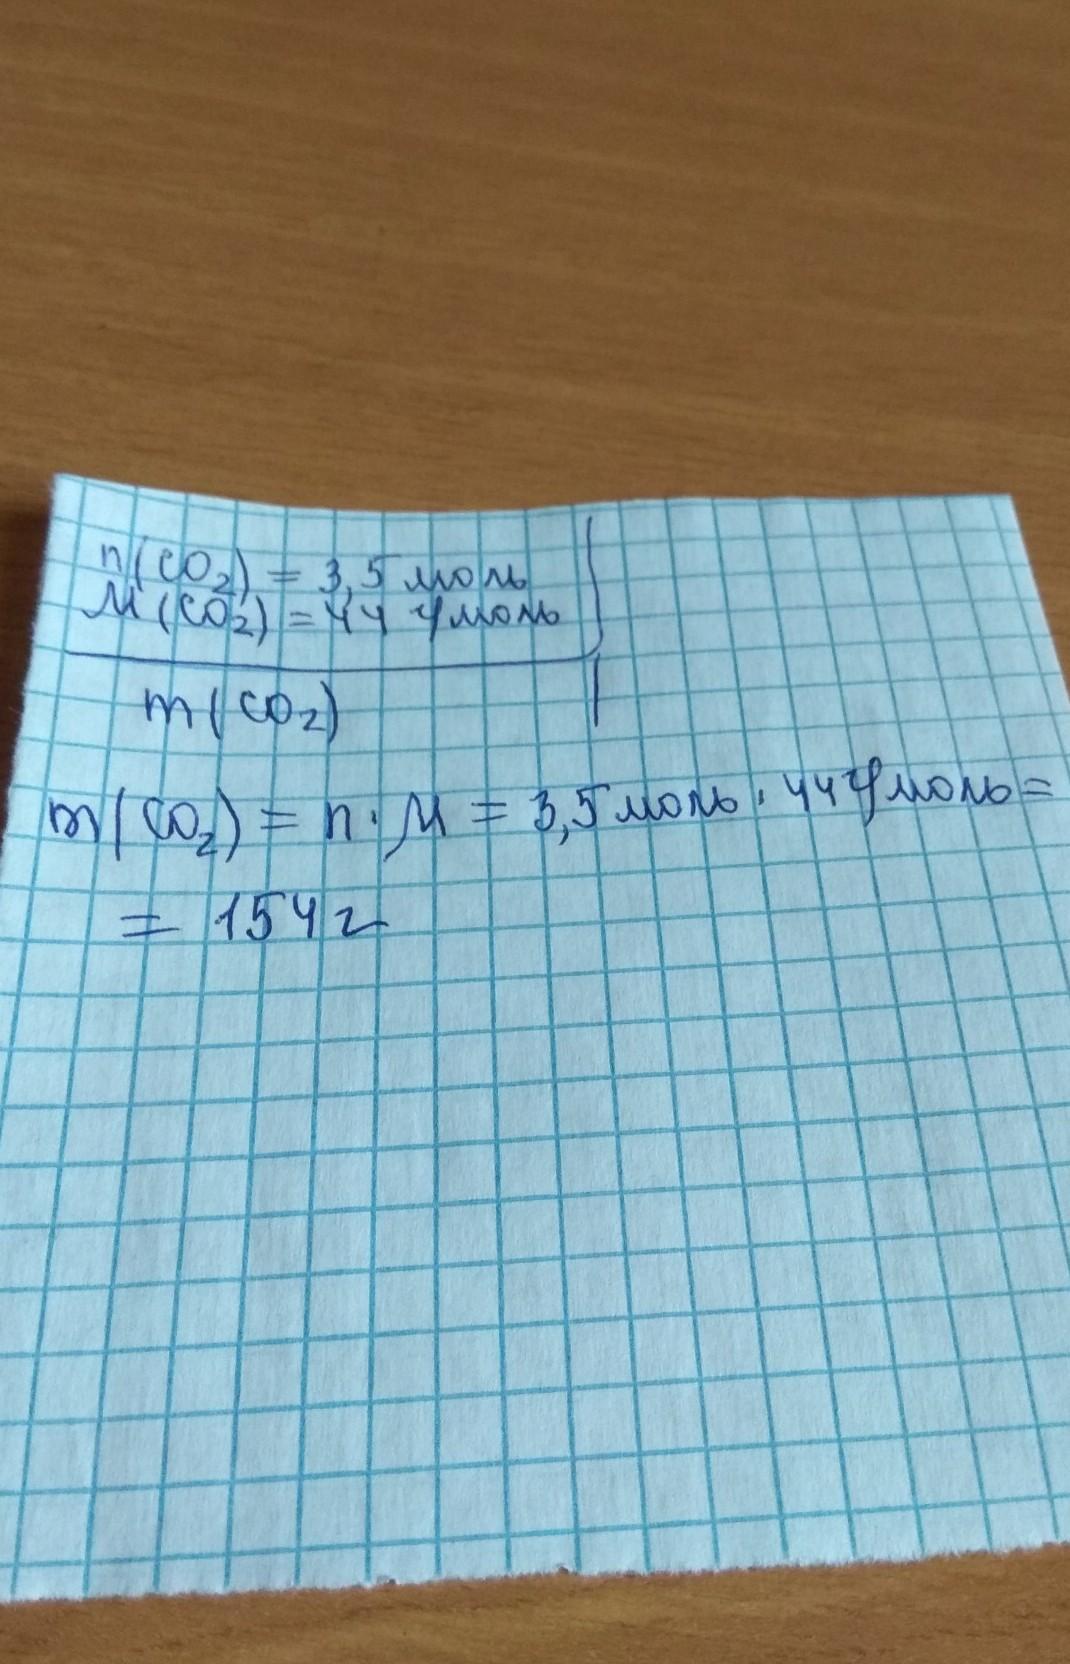 n(CO₂) = 3,5 моль
M(CO₂) = 44 г/моль
m(CO₂)
m(CO₂) = n · M = 3,5 моль · 44 г/моль =
= 154 г